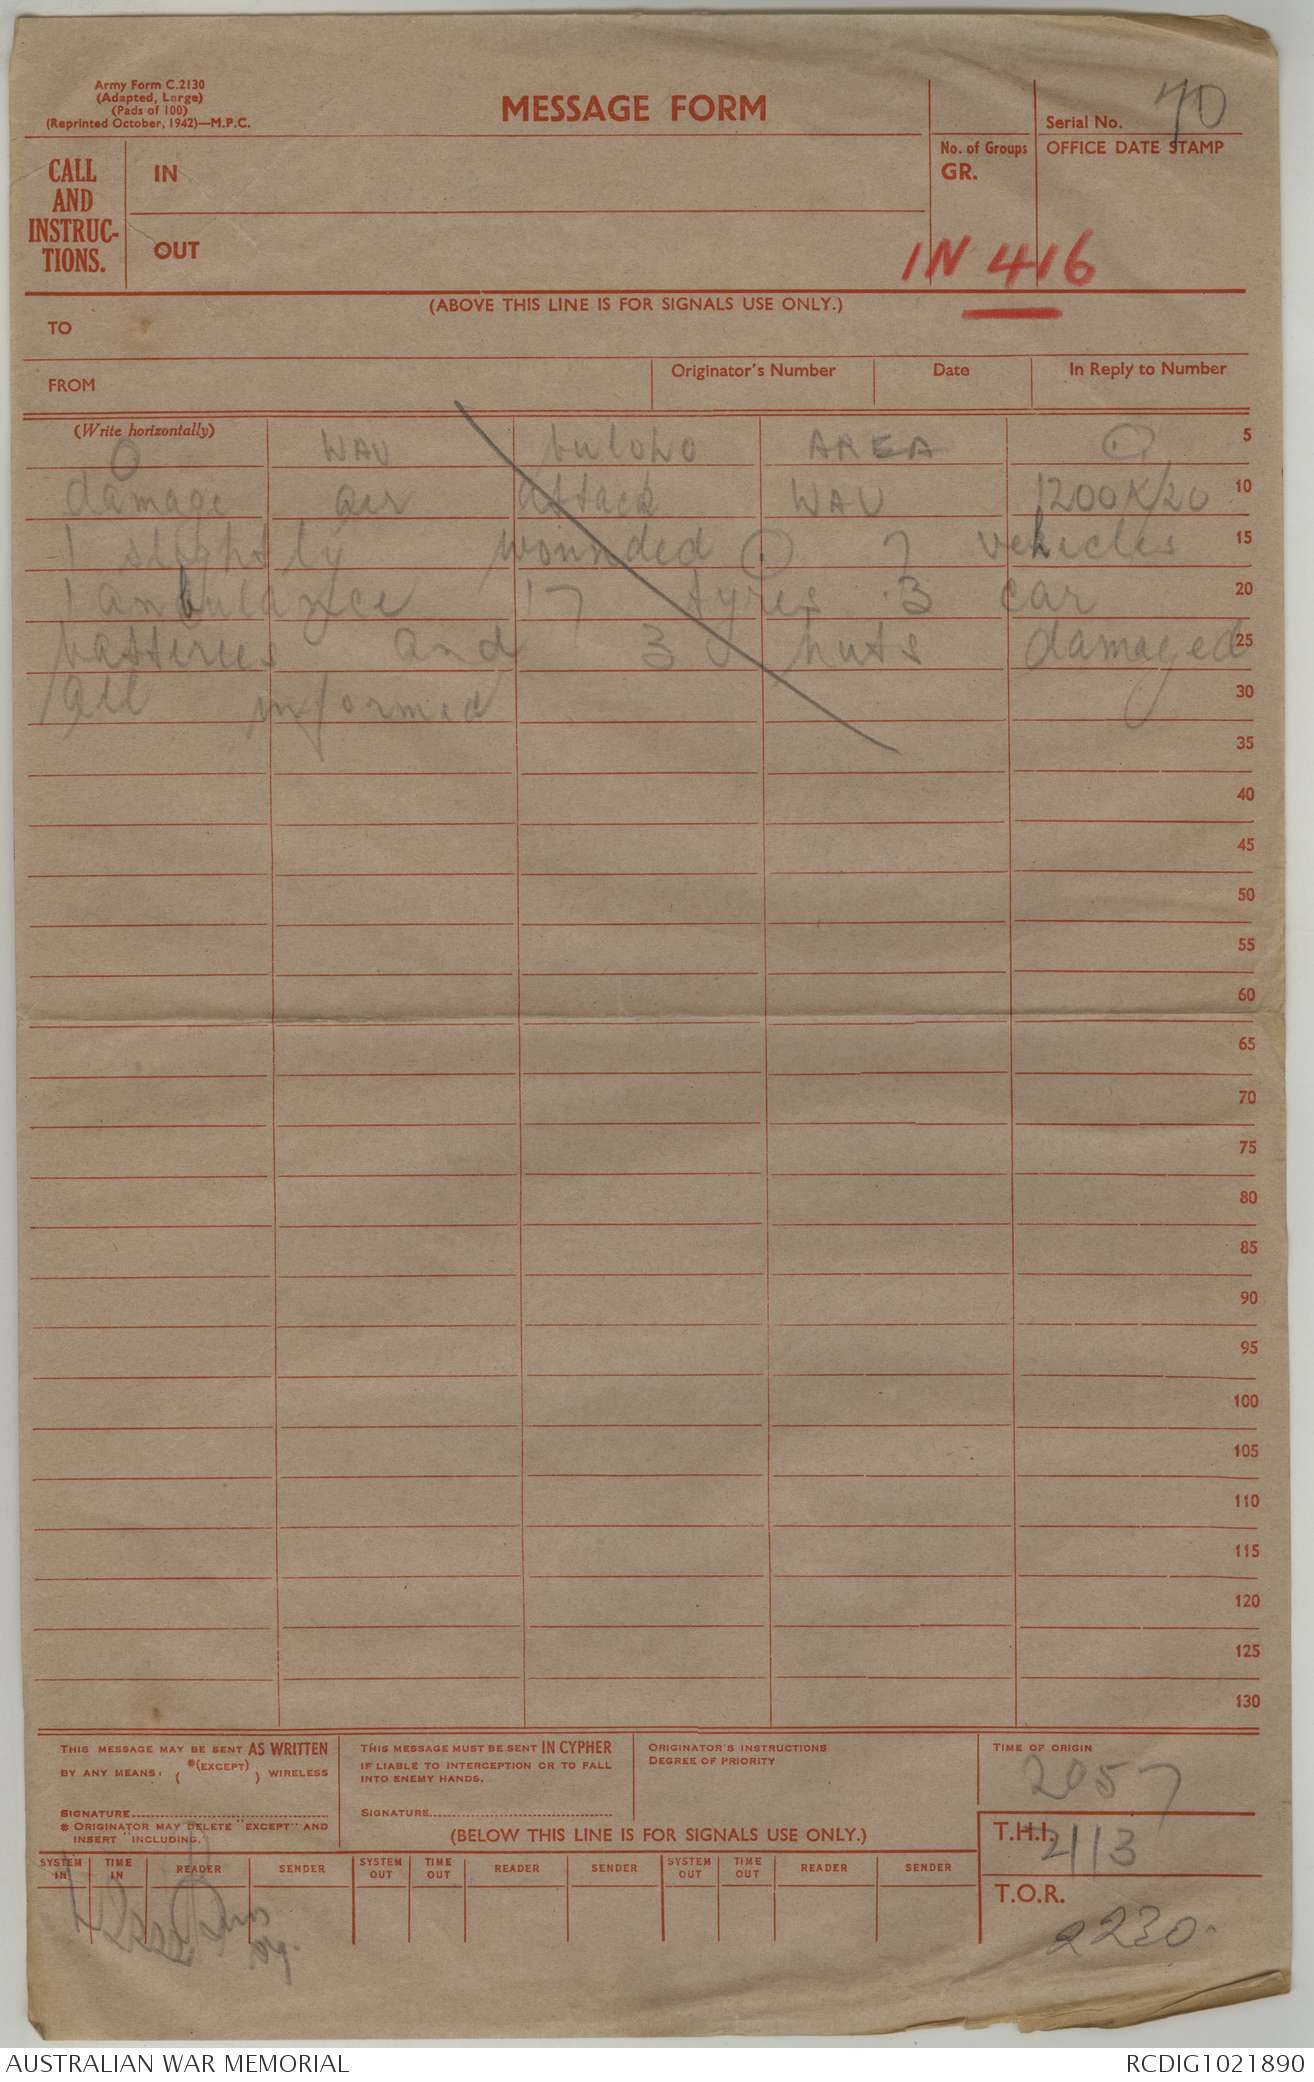 Army Form C.2130
(Adapted, Large)
(Pads of 100)
(Reprinted October, 1942)—M.P.C.
MESSAGE FORM
Serial No. 70
CALL AND INSTRUC-TIONS.
IN
OUT
No. of Groups
GR.
OFFICE DATE STAMP
IN 416
(ABOVE THIS LINE IS FOR SIGNALS USE ONLY.)
TO
FROM
Originator's Number
Date
In Reply to Number
(Write horizontally)
O WAU bulolo AREA (.) 5
damage air attack WAU 1200K/20 10
1 slightly wounded (.) 7 vehicles 15
1 ambulance 17 tyres 3 car 20
batteries and 3 huts damaged 25
all informed 30
35
40
45
50
55
60
65
70
75
80
85
90
95
100
105
110
115
120
125
130
THIS MESSAGE MAY BE SENT AS WRITTEN
BY ANY MEANS: ( *(EXCEPT) ) WIRELESS
SIGNATURE
* ORIGINATOR MAY DELETE "EXCEPT" AND
INSERT "INCLUDING."
THIS MESSAGE MUST BE SENT IN CYPHER
IF LIABLE TO INTERCEPTION OR TO FALL
INTO ENEMY HANDS.
SIGNATURE
ORIGINATOR'S INSTRUCTIONS
DEGREE OF PRIORITY
TIME OF ORIGIN
2057
(BELOW THIS LINE IS FOR SIGNALS USE ONLY.)
T.H.I. 2113
SYSTEM IN
TIME IN
READER
SENDER
SYSTEM OUT
TIME OUT
READER
SENDER
SYSTEM OUT
TIME OUT
READER
SENDER
T.O.R.
2230
AUSTRALIAN WAR MEMORIAL
RCDIG1021890